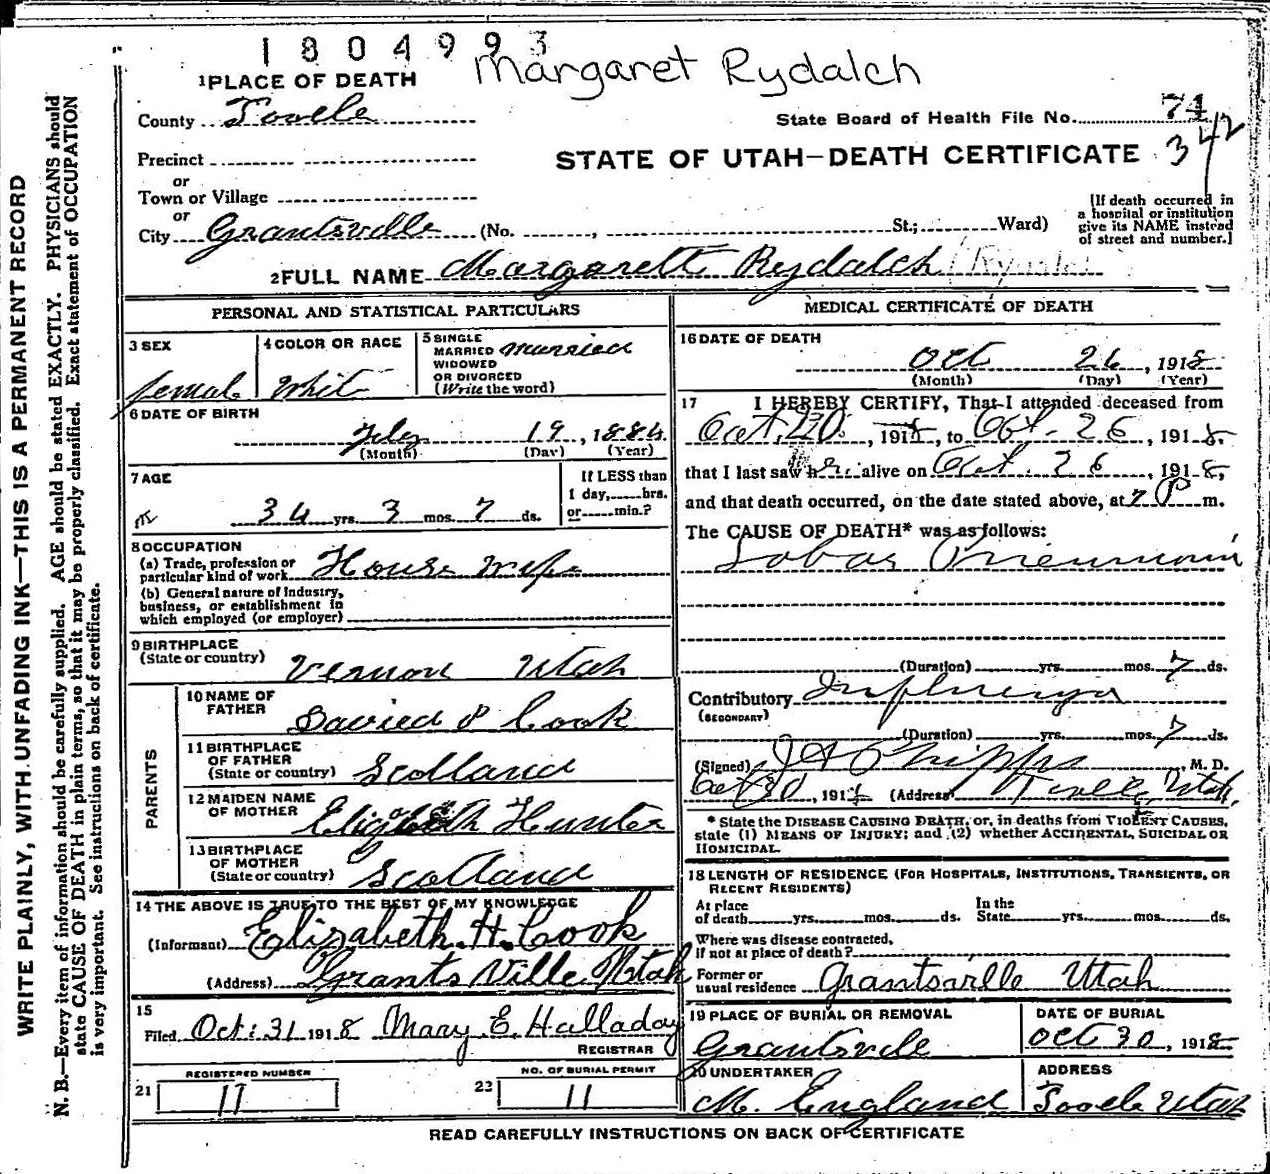 1804993
Margaret Rydalch
1 PLACE OF DEATH
County Tooele
State Board of Health File No. 74
342
Precinct
STATE OF UTAH—DEATH CERTIFICATE
or
Town or Village
or
City Grantsville (No. , St.; Ward)
[If death occurred in
a hospital or institution
give its NAME instead
of street and number.]
2 FULL NAME Margarett Rydalch
PERSONAL AND STATISTICAL PARTICULARS
3 SEX
female
4 COLOR OR RACE
White
5 SINGLE
MARRIED married
WIDOWED
OR DIVORCED
(Write the word)
6 DATE OF BIRTH
19, 1884
(Month) (Day) (Year)
7 AGE
34 yrs. 3 mos. 7 ds.
If LESS than
1 day, hrs.
or min.?
8 OCCUPATION
(a) Trade, profession or
particular kind of work House wife
(b) General nature of Industry,
business, or establishment in
which employed (or employer)
9 BIRTHPLACE
(State or country) Vernon Utah
PARENTS
10 NAME OF
FATHER Cook
11 BIRTHPLACE
OF FATHER
(State or country) Scotland
12 MAIDEN NAME
OF MOTHER Elizabeth Hunter
13 BIRTHPLACE
OF MOTHER
(State or country) Scotland
14 THE ABOVE IS TRUE TO THE BEST OF MY KNOWLEDGE
(Informant) Elizabeth. H. Cook
(Address) Grants Ville Utah
15
Filed Oct. 31 1918 Mary E. Halladay
REGISTRAR
REGISTERED NUMBER
21 11
NO. OF BURIAL PERMIT
22 11
MEDICAL CERTIFICATE OF DEATH
16 DATE OF DEATH
Oct 26, 1918
(Month) (Day) (Year)
17 I HEREBY CERTIFY, That I attended deceased from
Oct. 20, 1918, to Oct. 26, 1918.
that I last saw her alive on Oct. 26, 1918,
and that death occurred, on the date stated above, at 7 P m.
The CAUSE OF DEATH* was as follows:
Lobar Pneumonia
(Duration) yrs. mos. 7 ds.
Contributory Influenza
(SECONDARY)
(Duration) yrs. mos. 7 ds.
(Signed) J A Phipps, M. D.
Oct 30, 1918 (Address) Tooele, Utah.
* State the DISEASE CAUSING DEATH, or, in deaths from VIOLENT CAUSES,
state (1) MEANS OF INJURY; and (2) whether ACCIDENTAL, SUICIDAL OR
HOMICIDAL.
18 LENGTH OF RESIDENCE (FOR HOSPITALS, INSTITUTIONS, TRANSIENTS, OR
RECENT RESIDENTS)
At place In the
of death yrs. mos. ds. State yrs. mos. ds.
Where was disease contracted,
if not at place of death?
Former or
usual residence Grantsville Utah
19 PLACE OF BURIAL OR REMOVAL
Grantsville
DATE OF BURIAL
Oct 30, 1918
20 UNDERTAKER
M. England
ADDRESS
Tooele Utah
READ CAREFULLY INSTRUCTIONS ON BACK OF CERTIFICATE
WRITE PLAINLY, WITH UNFADING INK—THIS IS A PERMANENT RECORD
N. B.—Every item of information should be carefully supplied. AGE should be stated EXACTLY. PHYSICIANS should
state CAUSE OF DEATH in plain terms, so that it may be properly classified. Exact statement of OCCUPATION
is very important. See instructions on back of certificate.